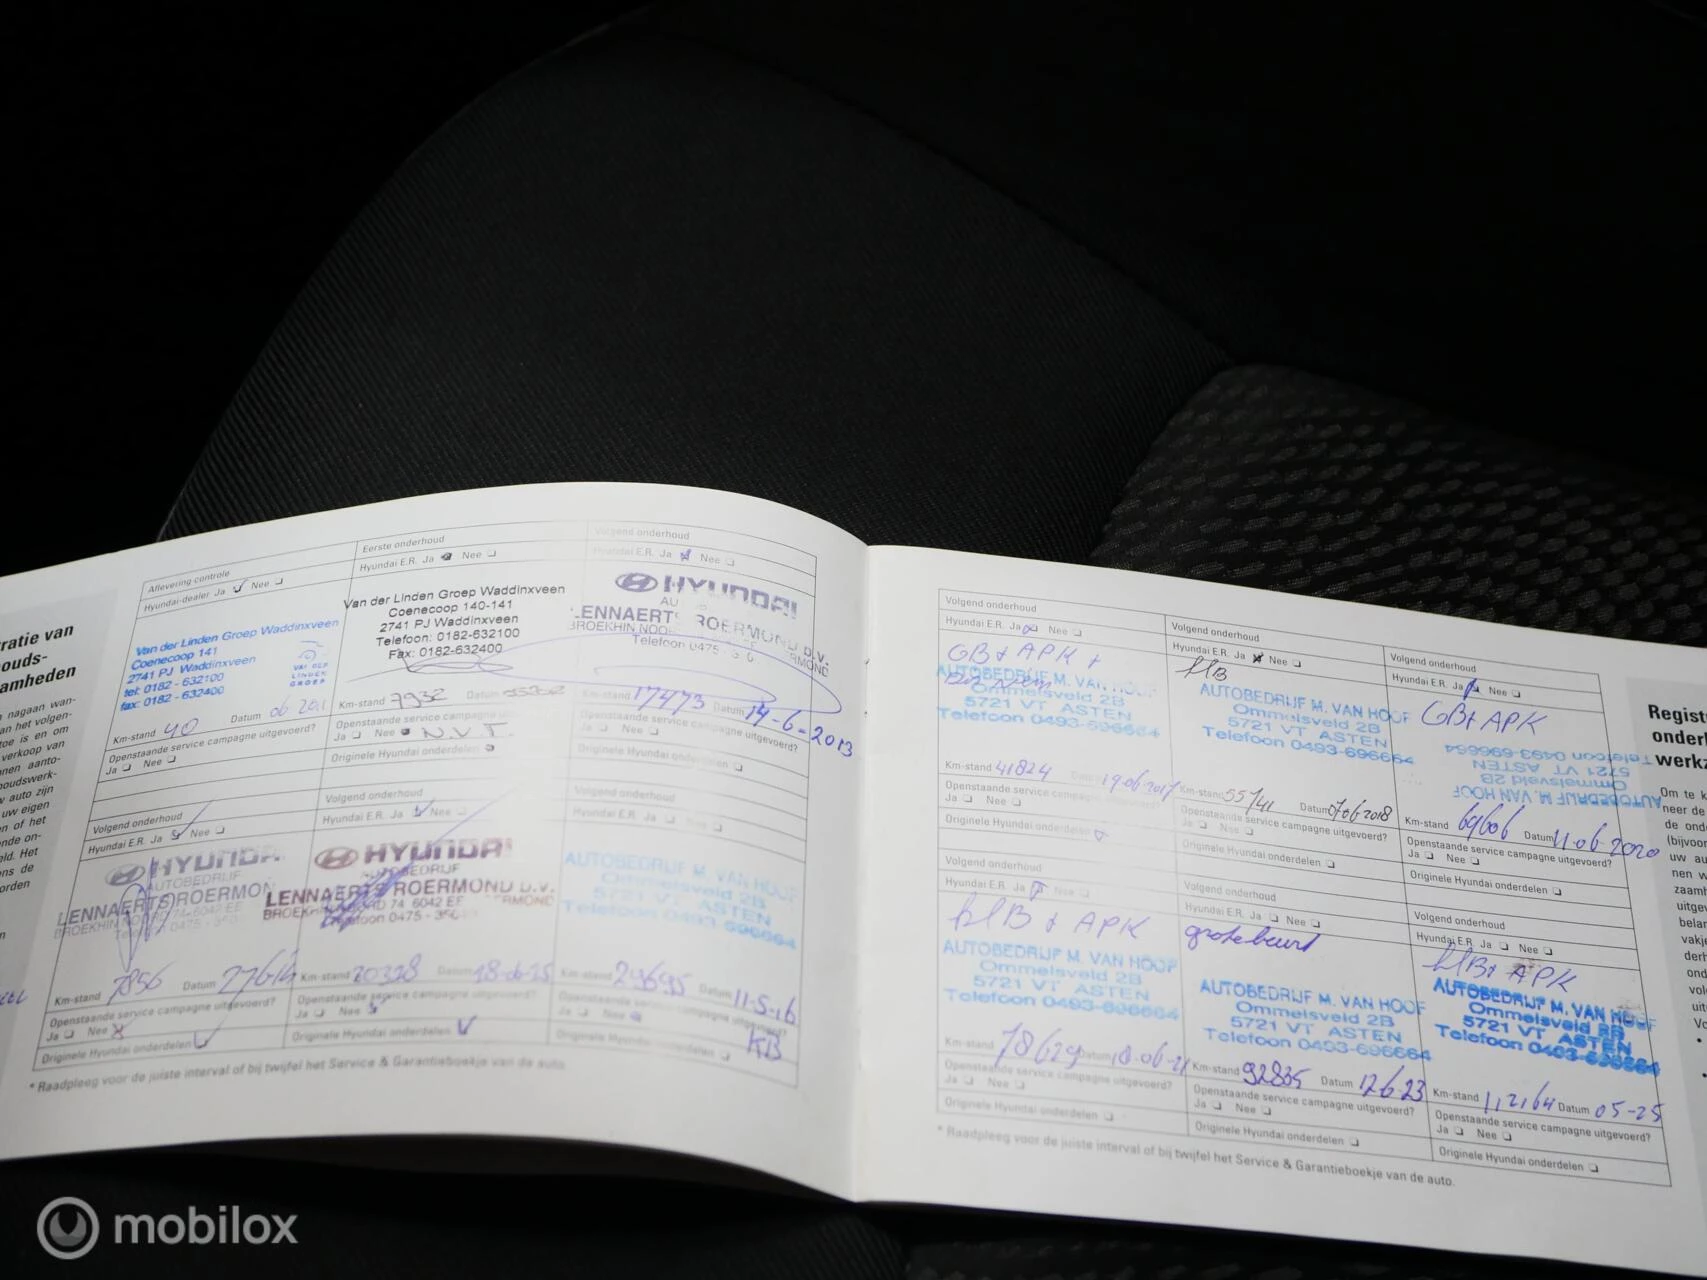 ratie van
ouds-
amheden
nagaan wan-
an het volgen-
toe is en om
verkoop van
nen aanto-
oudswerk-
auto zijn
uw eigen
en of het
ende on-
eld. Het
ens de
orden
Aflevering controle
Hyundai-dealer Ja Nee
Van der Linden Groep Waddinxveen
Coenecoop 141
2741 PJ Waddinxveen
tel: 0182 - 632100
fax: 0182 - 632400
VAN DER
LINDEN
GROEP
Km-stand 40 Datum
Openstaande service campagne uitgevoerd?
Ja Nee
Eerste onderhoud
Hyundai E.R. Ja Nee
Van der Linden Groep Waddinxveen
Coenecoop 140-141
2741 PJ Waddinxveen
Telefoon: 0182-632100
Fax: 0182-632400
Km-stand 7932 Datum
Openstaande service campagne
Ja Nee N.V.T.
Originele Hyundai onderdelen
Volgend onderhoud
Hyundai E.R. Ja Nee
HYUNDAI
LENNAERTS ROERMOND B.V.
Telefoon 0475
Km-stand 17473 Datum 14-6-2013
Openstaande service campagne uitgevoerd?
Ja Nee
Originele Hyundai onderdelen
Volgend onderhoud
Hyundai E.R. Ja Nee
HYUNDAI
AUTOBEDRIJF
LENNAERTS ROERMOND
Km-stand 7856 Datum
Openstaande service campagne uitgevoerd?
Ja Nee
Originele Hyundai onderdelen
Volgend onderhoud
Hyundai E.R. Ja Nee
HYUNDAI
AUTOBEDRIJF
LENNAERTS ROERMOND B.V.
Telefoon 0475
Km-stand 20328 Datum
Openstaande service campagne uitgevoerd?
Ja Nee
Originele Hyundai onderdelen
Volgend onderhoud
Ja Nee
AUTOBEDRIJF M. VAN HOOF
Ommelsveld 2B
5721 VT ASTEN
Telefoon 0493-696664
Km-stand 29695 Datum 11-5-16
Openstaande service campagne uitgevoerd?
Ja Nee
Originele Hyundai onderdelen
KB
* Raadpleeg voor de juiste interval of bij twijfel het Service & Garantieboekje van de auto.
Volgend onderhoud
Hyundai E.R. Ja Nee
GB + APK +
AUTOBEDRIJF M. VAN HOOF
Ommelsveld 2B
5721 VT ASTEN
Telefoon 0493-696664
Km-stand 41824 Datum 19-06-2017
Openstaande service campagne uitgevoerd?
Ja Nee
Originele Hyundai onderdelen
Volgend onderhoud
Hyundai E.R. Ja Nee
klB
AUTOBEDRIJF M. VAN HOOF
Ommelsveld 2B
5721 VT ASTEN
Telefoon 0493-696664
Km-stand 55741 Datum 07-06-2018
Openstaande service campagne uitgevoerd?
Ja Nee
Originele Hyundai onderdelen
Volgend onderhoud
Hyundai E.R. Ja Nee
GB+ APK
AUTOBEDRIJF M. VAN HOOF
Ommelsveld 2B
5721 VT ASTEN
Telefoon 0493-696664
Km-stand 69606 Datum 11-06-2020
Openstaande service campagne uitgevoerd?
Ja Nee
Originele Hyundai onderdelen
Volgend onderhoud
Hyundai E.R. Ja Nee
klB + APK
AUTOBEDRIJF M. VAN HOOF
Ommelsveld 2B
5721 VT ASTEN
Telefoon 0493-696664
Km-stand 78629 Datum
Openstaande service campagne uitgevoerd?
Ja Nee
Originele Hyundai onderdelen
Volgend onderhoud
Hyundai E.R. Ja Nee
grote beurt
AUTOBEDRIJF M. VAN HOOF
Ommelsveld 2B
5721 VT ASTEN
Telefoon 0493-696664
Km-stand 92835 Datum 12-6-23
Openstaande service campagne uitgevoerd?
Ja Nee
Originele Hyundai onderdelen
Volgend onderhoud
Hyundai E.R. Ja Nee
klB+ APK
AUTOBEDRIJF M. VAN HOOF
Ommelsveld 2B
5721 VT ASTEN
Telefoon 0493-696664
Km-stand 112164 Datum 05-25
Openstaande service campagne uitgevoerd?
Ja Nee
Originele Hyundai onderdelen
* Raadpleeg voor de juiste interval of bij twijfel het Service & Garantieboekje van de auto.
Regist
onderh
werkz
Om te k
neer de
de ond
(bijvoor
uw au
nen w
zaamh
uitgev
belan
vakje
derh
ond
vol
uit
mobilox